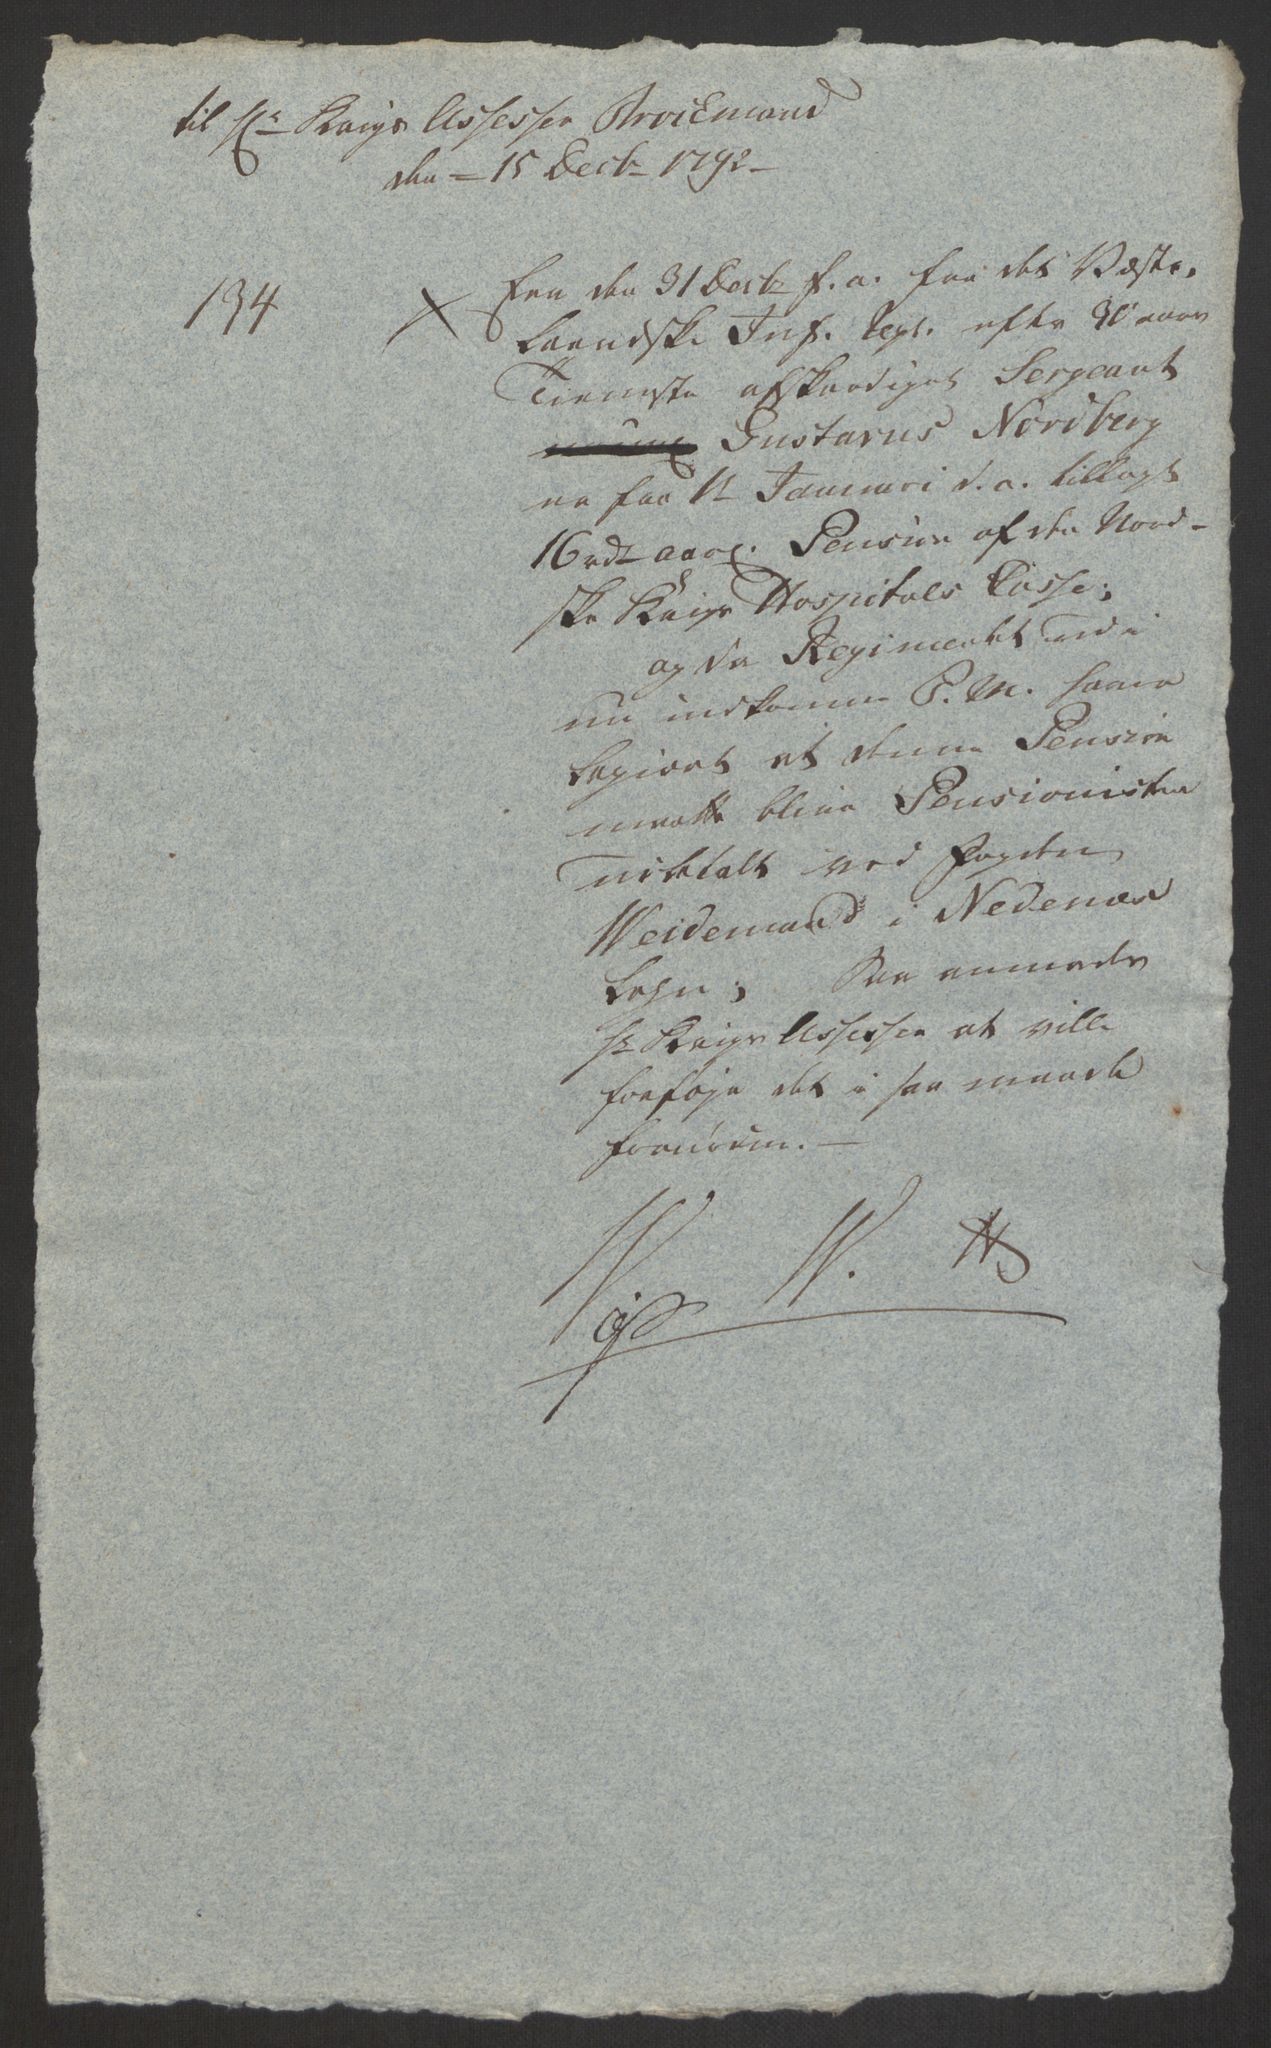 til Hr Krigs Assessor Broiemand
den 15 Decbr 1792
134
Een den 31 Decbr f. a. fra det Væster
landske Inf. Regt. efter aars
Tieneste afskeediget Sergeant
Gustavus Nordberg
er fra 1te Januari d. a. tillagt
16 rdr aarl. Pension af den Nord-
ske Krigs Hospitals Casse;
og da Regimentet udi
nu indkomne P. M. haver
begiæret at denne Pension
maatte blive Pensionisten
udbetalt ved Fogden
Weidemand i Nedenæs
Lehn; Saa anmodes
Hr Krigs Assessor at ville
forføje det i saa maade
fornødne.
W. H